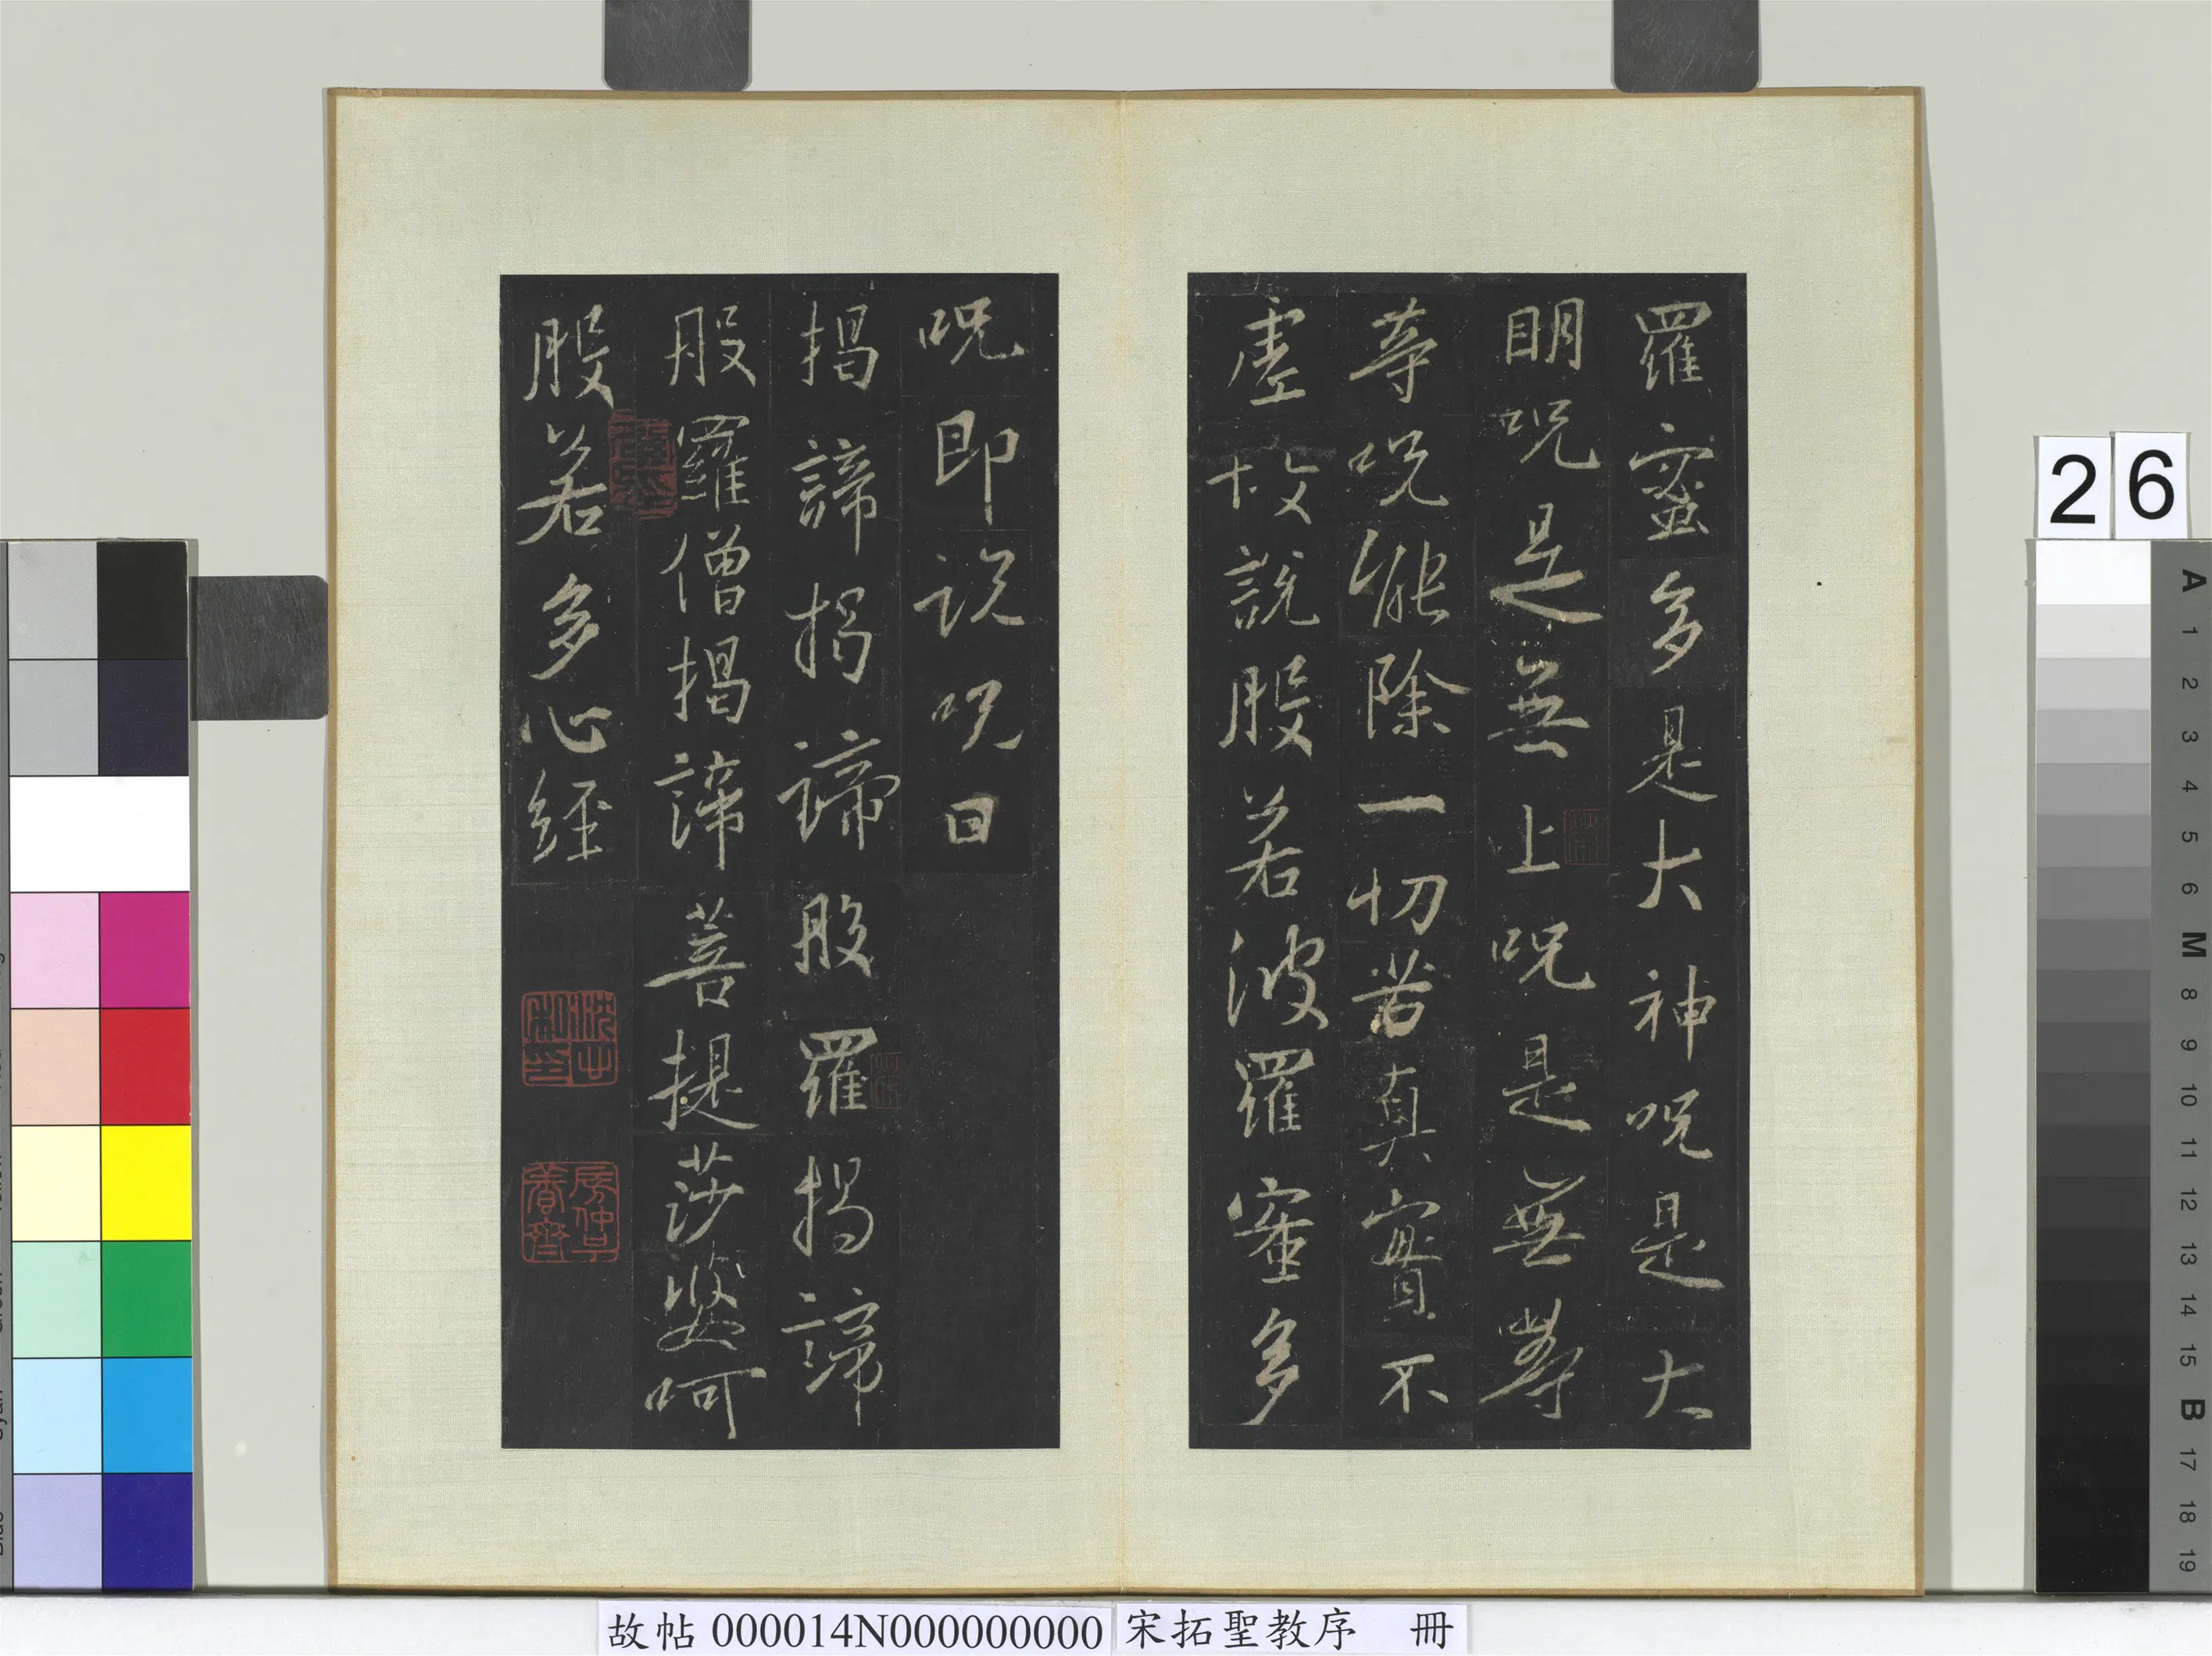 羅蜜多是大神呪是大
明呪是無上呪是無等
等呪能除一切苦真實不
虛故說般若波羅蜜多
呪即說呪曰
揭諦揭諦般羅揭諦
般羅僧揭諦菩提莎婆呵
般若多心經
26
故帖 000014N000000000
宋拓聖教序 冊
A
1
2
3
4
5
6
M
8
9
10
11
12
13
14
15
B
17
18
19